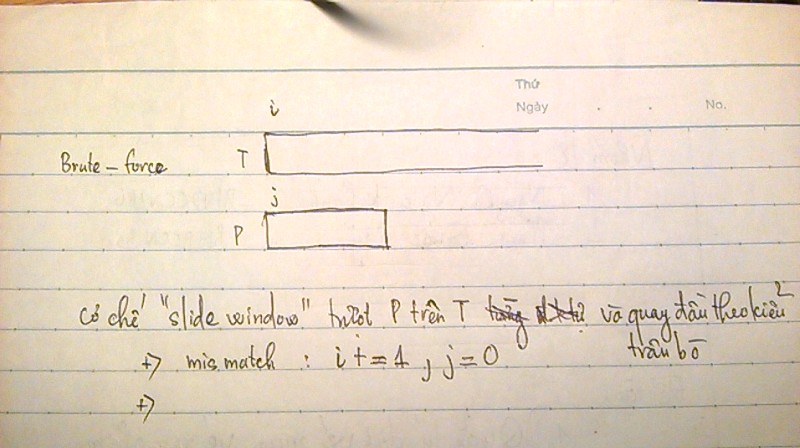 Thứ
Ngày . . No.
i
Brute - force T
j
P
Cơ chế "slide window" trượt P trên T và quay đầu theo kiểu
trâu bò
+) mismatch : i += 1 , j = 0
+)